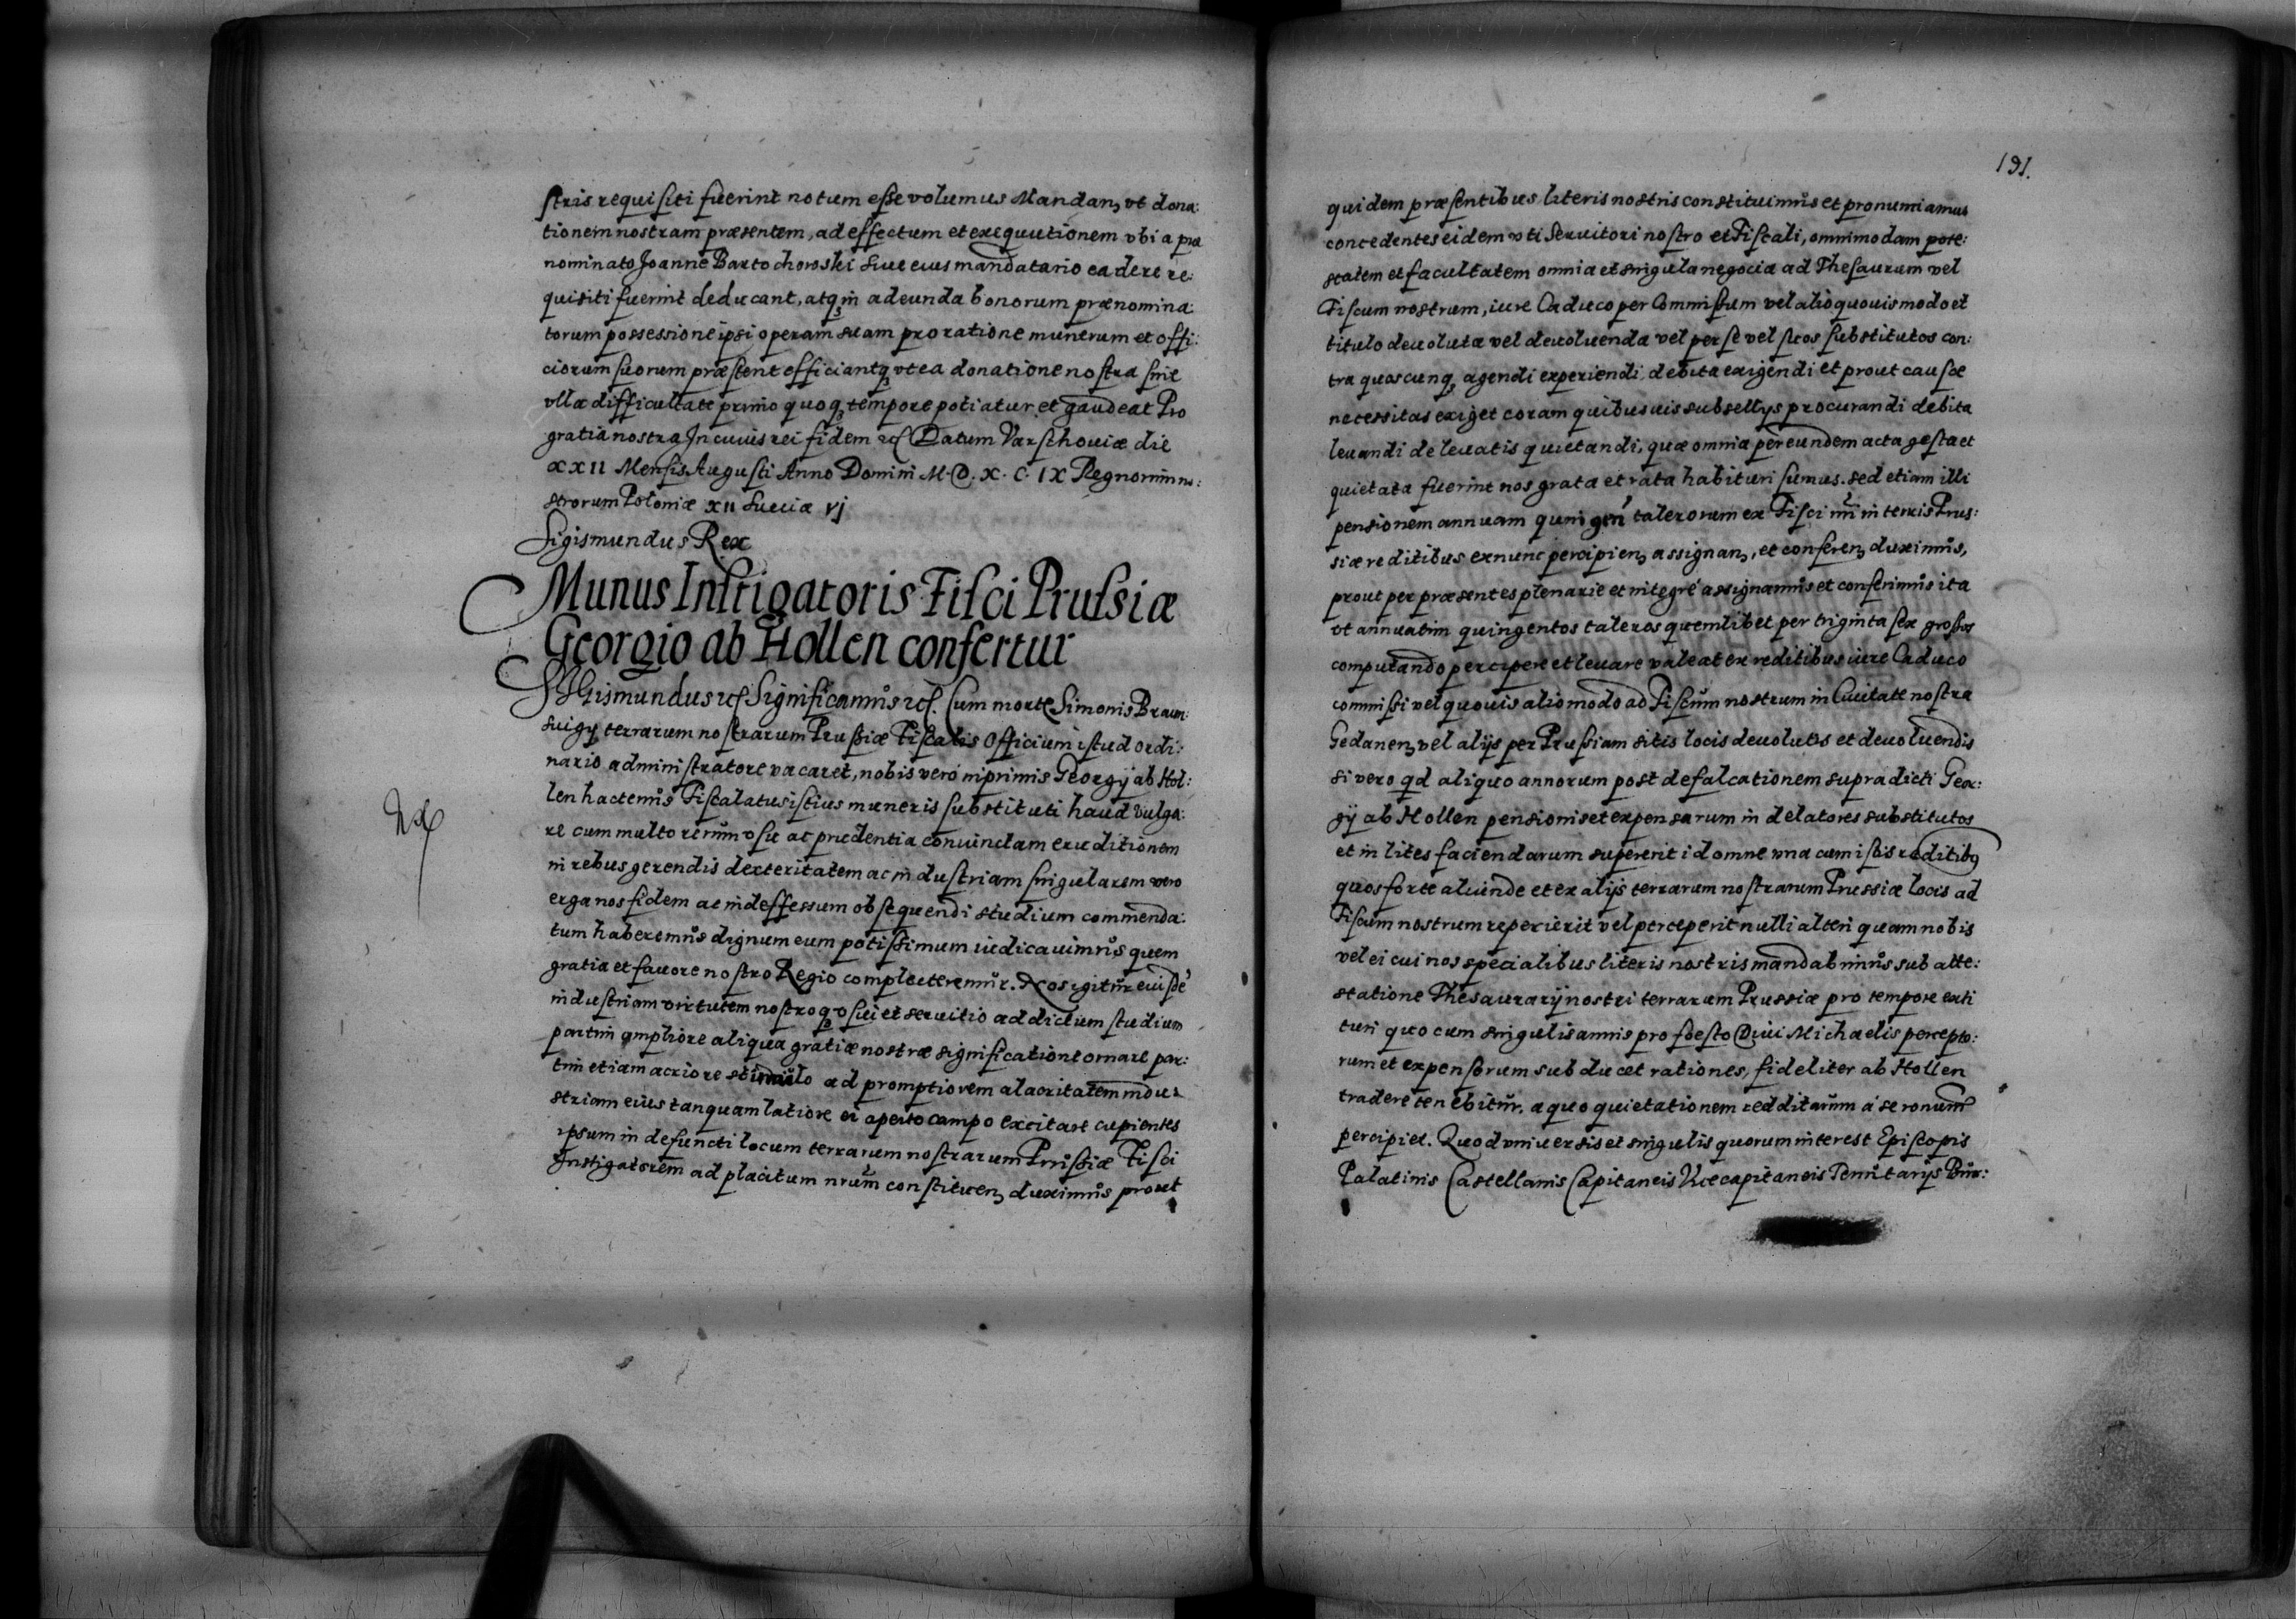 stris requisiti fuerint notum esse volumus Mandan, vt dona:
tionem nostram præsentem, ad effectum et exequutionem vbi a præ
nominato Joanne Bartochowski siue eius mandatario ea de re re:
quisiti fuerint deducant, atq, in adeunda bonorum prænomina:
torum possessione ipsi operam suam pro ratione munerum et offi:
ciorum suorum præstent efficiantq, vt ea donatione nostra sine
vlla difficultate primo quoq, tempore potiatur et gaudeat Pro
gratia nostra In cuius rei fidem etc Datum Varschouiæ die
XXII Mensis Augusti Anno Domini M.D.X.C.IX Regnorum no:
strorum Poloniæ XII Sueciæ vj
Sigismundus Rex
Munus Instigatoris Fisci Prussiæ
Georgio ab Hollen confertur
SIGismundus etc Significamus etc. Cum morte Simonis Braun:
suigij terrarum nostrarum Prussiæ Fiscalis Officium istud ordi:
nario administratore vacaret, nobis vero inprimis Georgij ab Hol:
len hactenus Fiscalatus istius muneris substituti haud vulga:
re cum multo rerum vsu ac prudentia conuinctam eruditionem
in rebus gerendis dexteritatem ac industriam singularem vero
erga nos fidem ac indeffessum obsequendi studium commenda:
tum haberemus dignum eum potissimum iudicauimus quem
gratia et fauore nostro Regio complecteremur. Nos igitur eiusdé
industriam virtutem nostroq, vsui et seruitio addictum studium
partim ampliore aliqua gratiæ nostræ significatione ornare par:
tim etiam acriore stimulo ad promptiorem alacritatem indu:
striam eius tanquam latiore ei aperto campo excitare cupientes
ipsum in defuncti locum terrarum nostrarum Prussiæ Fisci
Instigatorem ad placitum nrum constituen, duximus prout
191.
quidem præsentibus literis nostris constituimus et pronunciamus
concedentes eidem vti Seruitori nostro et Fiscali, omnimodam pote:
statem et facultatem omnia et singula negocia ad Thesaurum vel
Fiscum nostrum, iure Caduco per Commissum vel alio quouis modo et
titulo deuoluta vel deuoluenda vel per se vel suos substitutos con:
tra quascunq, agendi experiendi, debita exigendi et prout causæ
necessitas exiget coram quibusuis subsellijs procurandi debita
leuandi de leuatis quietandi, quæ omnia per eundem acta gesta et
quietata fuerint nos grata et rata habituri sumus. sed etiam illi
pensionem annuam quingen talerorum ex Fisci nri in terris Prus:
siæ reditibus exnunc percipien, assignan, et conferen, duximus,
prout per præsentes plenarie et integré assignamus et conferimus ita
vt annuatim quingentos taleros quemlibet per triginta sex grossos
computando percipere et leuare valeat ex reditibus iure Caduco
commissi vel quouis alio modo ad Fiscum nostrum in Ciuitate nostra
Gedanen, vel alijs per Prussiam sitis locis deuolutis et deuoluendis
si vero qd aliquo annorum post defalcationem supradicti Geor:
gij ab Hollen pensionis et expensarum in delatores substitutos
et in lites faciendarum supererit id omne vna cum istis reditibus
quos forte aliunde et ex alijs terrarum nostrarum Prussiæ locis ad
Fiscum nostrum reperierit vel perceperit nulli alteri quam nobis
vel ei cui nos specialibus literis nostris mandabimus sub atte:
statione Thesaurarij nostri terrarum Prussiæ pro tempore exti
turi quocum singulis annis pro foesto Diui Michaelis percepto:
rum et expensorum subducet rationes, fideliter ab Hollen
tradere tenebitur. a quo quietationem redditarum a se ronum
percipiet. Quod vniuersis et singulis quorum interest Episcopis
Palatinis Castellanis Capitaneis Vicecapitaneis Tenutarijs Bur: